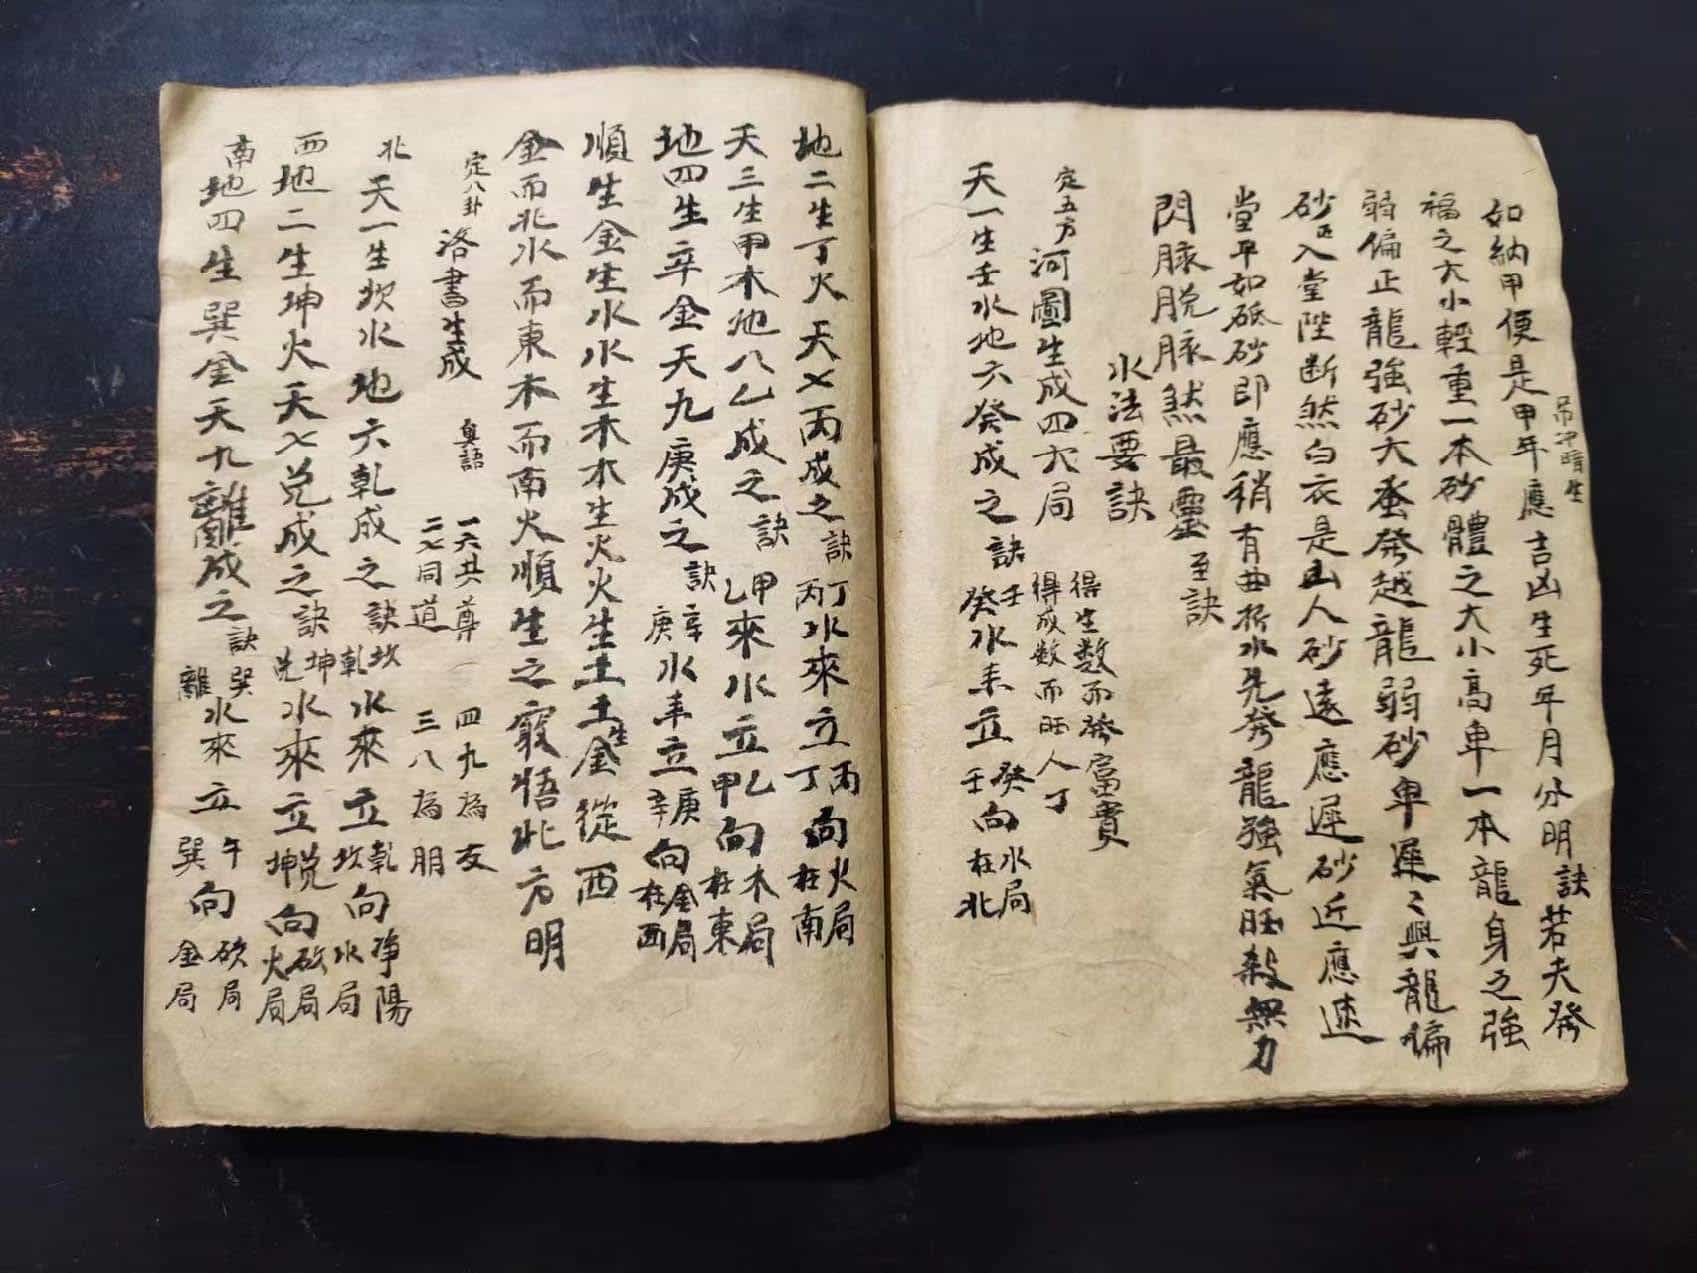 如納甲便是甲年應吉凶生死年月分明訣若夫發
吊冲暗生
福之大小輕重一本砂體之大小高卑一本龍身之強
弱偏正龍強砂大蚤發越龍弱砂卑遲〻興龍偏
砂正入堂陛斷然白衣是山人砂遠應遲砂近應速
堂平如砥砂即應稍有曲折水先發龍強氣旺殺無力
閃脉脱脉煞最靈至訣
水法要訣
定五方河圖生成四大局 得生數而發富貴
得成數而旺人丁
天一生壬水地六癸成之訣壬癸水来立癸壬向水局在北
地二生丁火天七丙成之訣丁丙水來立丙丁向火局在南
天三生甲木地八乙成之訣甲乙來水立乙甲向木局在東
地四生辛金天九庚成之訣辛庚水来立庚辛向金局在西
順生金生水水生木木生火火生土土生金從西
金而北水而東木而南火順生之竅悟北方明
定八卦洛書生成 奥語 一六共尊 四九為友
二七同道 三八為朋
北天一生坎水地六乾成之訣坎乾水來立乾坎向净陽水局
西地二生坤火天七兑成之訣坤兑水來立兑坤向砍局火局
南地四生巽金天九離成之訣巽離水來立午巽向砍局金局